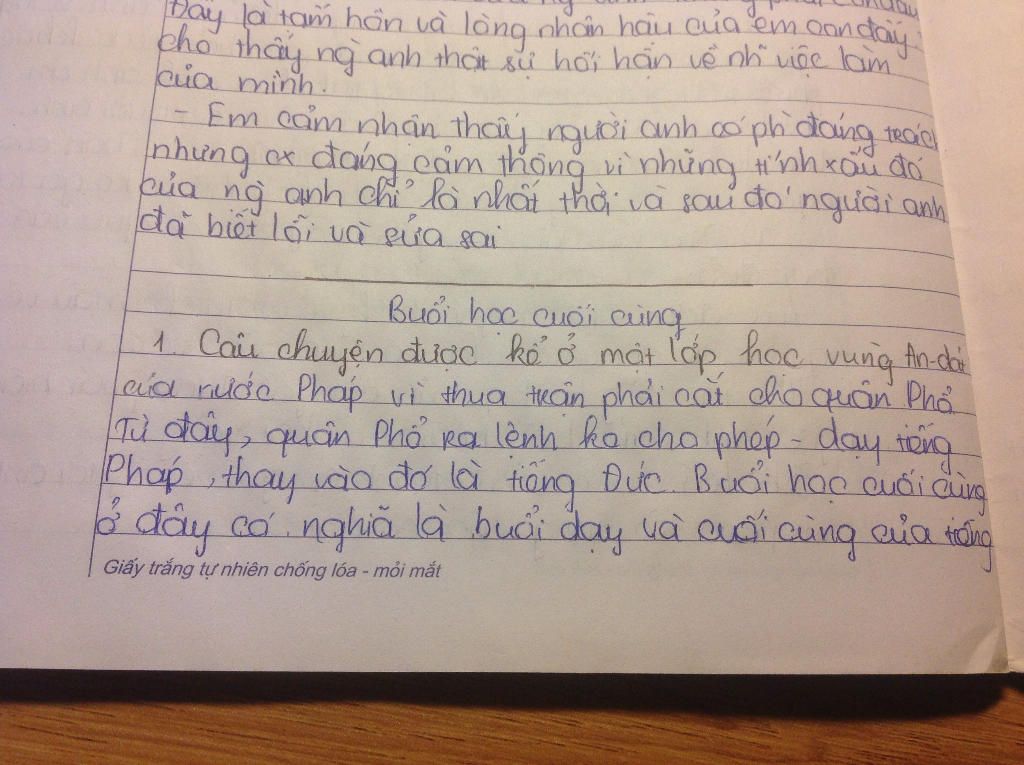 Đây là tâm hồn và lòng nhân hậu của em con đấy.
cho thấy ng` anh thật sự hối hận về nh~ việc làm
của mình.
- Em cảm nhận thấy người anh có phì đáng trách
nhưng cx đáng cảm thông vì những tính xấu đó
của ng` anh chỉ là nhất thời và sau đó người anh
đã biết lỗi và sửa sai
Buổi học cuối cùng
1. Câu chuyện được kể ở một lớp học vùng An-dát
của nước Pháp vì thua trận phải cắt cho quân Phổ
Từ đây, quân Phổ ra lệnh ko cho phép - dạy tiếng
Pháp, thay vào đó là tiếng Đức. Buổi học cuối cùng
ở đây có nghĩa là buổi dạy và cuối cùng của tiếng
Giấy trắng tự nhiên chống lóa - mỏi mắt